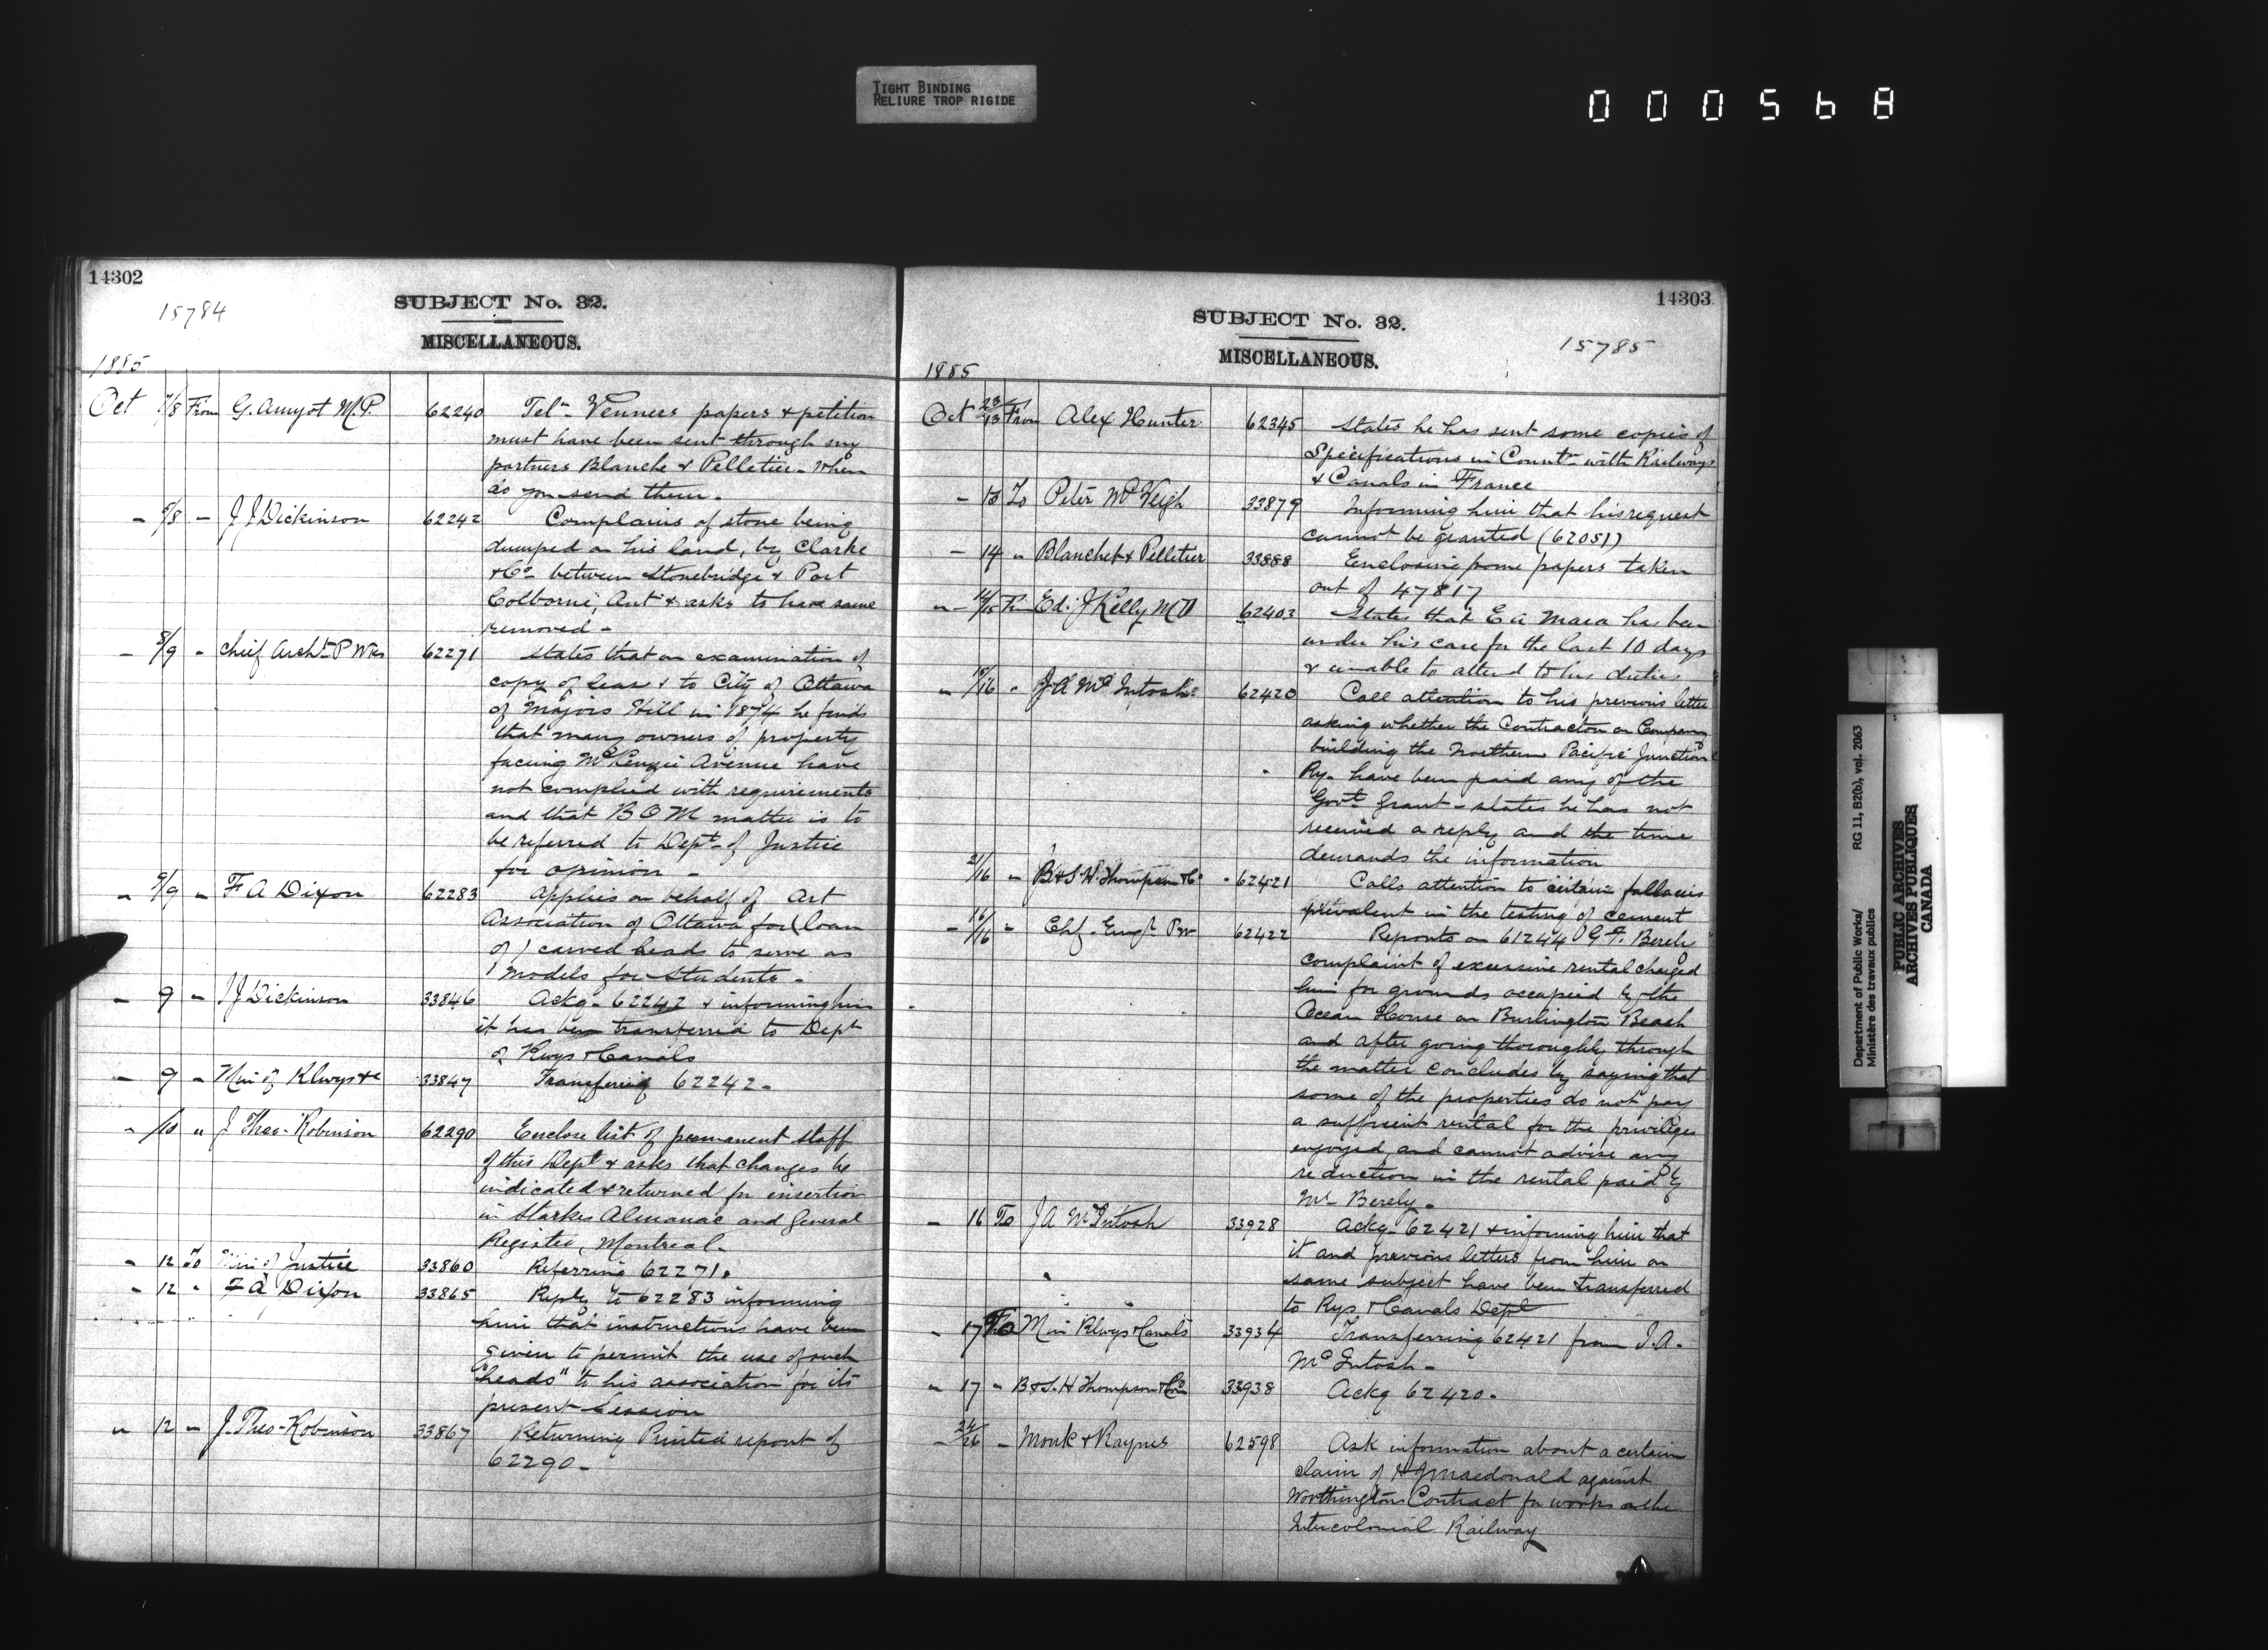 TIGHT BINDING
RELIURE TROP RIGIDE
000568
14302
15784
SUBJECT No. 32.
MISCELLANEOUS.
1885
Oct 7/8 From G. Amyot M.P. 62240 Telm Venners papers & petition
must have been sent through my
partners Blanche & Pelletier - When
do you send them.
" 6/8 " J J Dickinson 62242 Complains of stone being
dumped on his land, by Clarke
& Co between Stonebridge & Port
Colborne, Ont & asks to have same
removed -
" 8/9 " Chief Archt P Wks 62271 States that on examination of
copy of lease & to City of Ottawa
of Majors Hill in 1874 he finds
that many owners of property
facing McKenzie Avenue have
not complied with requirements
and that B O M matter is to
be referred to Dept of Justice
for opinion -
" 9/9 " F A Dixon 62283 Applies on behalf of Art
Association of Ottawa for (loan
of) carved heads to serve as
models for students -
" 9 " J J Dickinson 33846 Ackg - 62242 & informing him
it has been transferred to Dept
of Rwys & Canals
" 9 " Min of Rlwys &c 33847 Transferring 62242 -
" /10 " J Theo - Robinson 62290 Enclose list of permanent staff
of this Dept & asks that changes be
indicated & returned for insertion
in Starkes Almanac and General
Register, Montreal -
" 12 To Min of Justice 33860 Referring 62271.
" 12 " F A Dixon 33865 Reply to 62283 informing
him that instructions have been
given to permit the use of such
"heads" to his association for its
present session
" 12 " J. Theo - Robinson 33867 Returning Printed report of
62290 -
14303
SUBJECT No. 32.
MISCELLANEOUS.
15785
1885
Oct 23/13 From Alex Hunter 62345 States he has sent some copies of
Specifications in Countn with Railways
& Canals in France
- 13 To Peter McVeigh 33879 Informing him that his request
cannot be granted (62051)
- 14 " Blanchet & Pelletier 33888 Enclosing some papers taken
out of 47817
" 14/15 Fm Ed. J Kelly MD 62403 States that E A Mara has been
under his care for the last 10 days
& unable to attend to his duties
" 15/16 " J. A McIntosh 62420 Call attention to his previous letter
asking whether the Contractor or Company
building the Northern Pacific Junction
Ry - have been paid any of the
Govt Grant - states he has not
received a reply and the time
demands the information
21/16 " B & S. H. Thompson & Co 62421 Calls attention to certain fallacies
prevalent in the testing of cement
- 16/16 " Chf. Engr P W 62422 Reports on 61244 G F. Berely
complaint of excessive rental charged
him for grounds occupied by the
Ocean House on Burlington Beach
and after going thoroughly through
the matter concludes by saying that
some of the properties do not pay
a sufficient rental for the privileges
enjoyed, and cannot advise any
reduction in the rental paid by
Mr Berely -
- 16 To J A McIntosh 33928 Ackg - 62421 & informing him that
it and previous letters from him on
same subject have been transferred
to Rys & Canals Dept
" 17 To Min Rlwys & Canals 33934 Transferring 62421 from J. A.
McIntosh -
" 17 " B & S. H Thompson & Co 33938 Ackg 62420 -
- 24/26 " Monk & Raynes 62598 Ask information about a certain
claim of H J Macdonald against
Worthingtons Contract for works on the
Intercolonial Railway
Department of Public Works/ RG 11, B2(b), vol. 2063
Ministère des travaux publics
PUBLIC ARCHIVES
ARCHIVES PUBLIQUES
CANADA